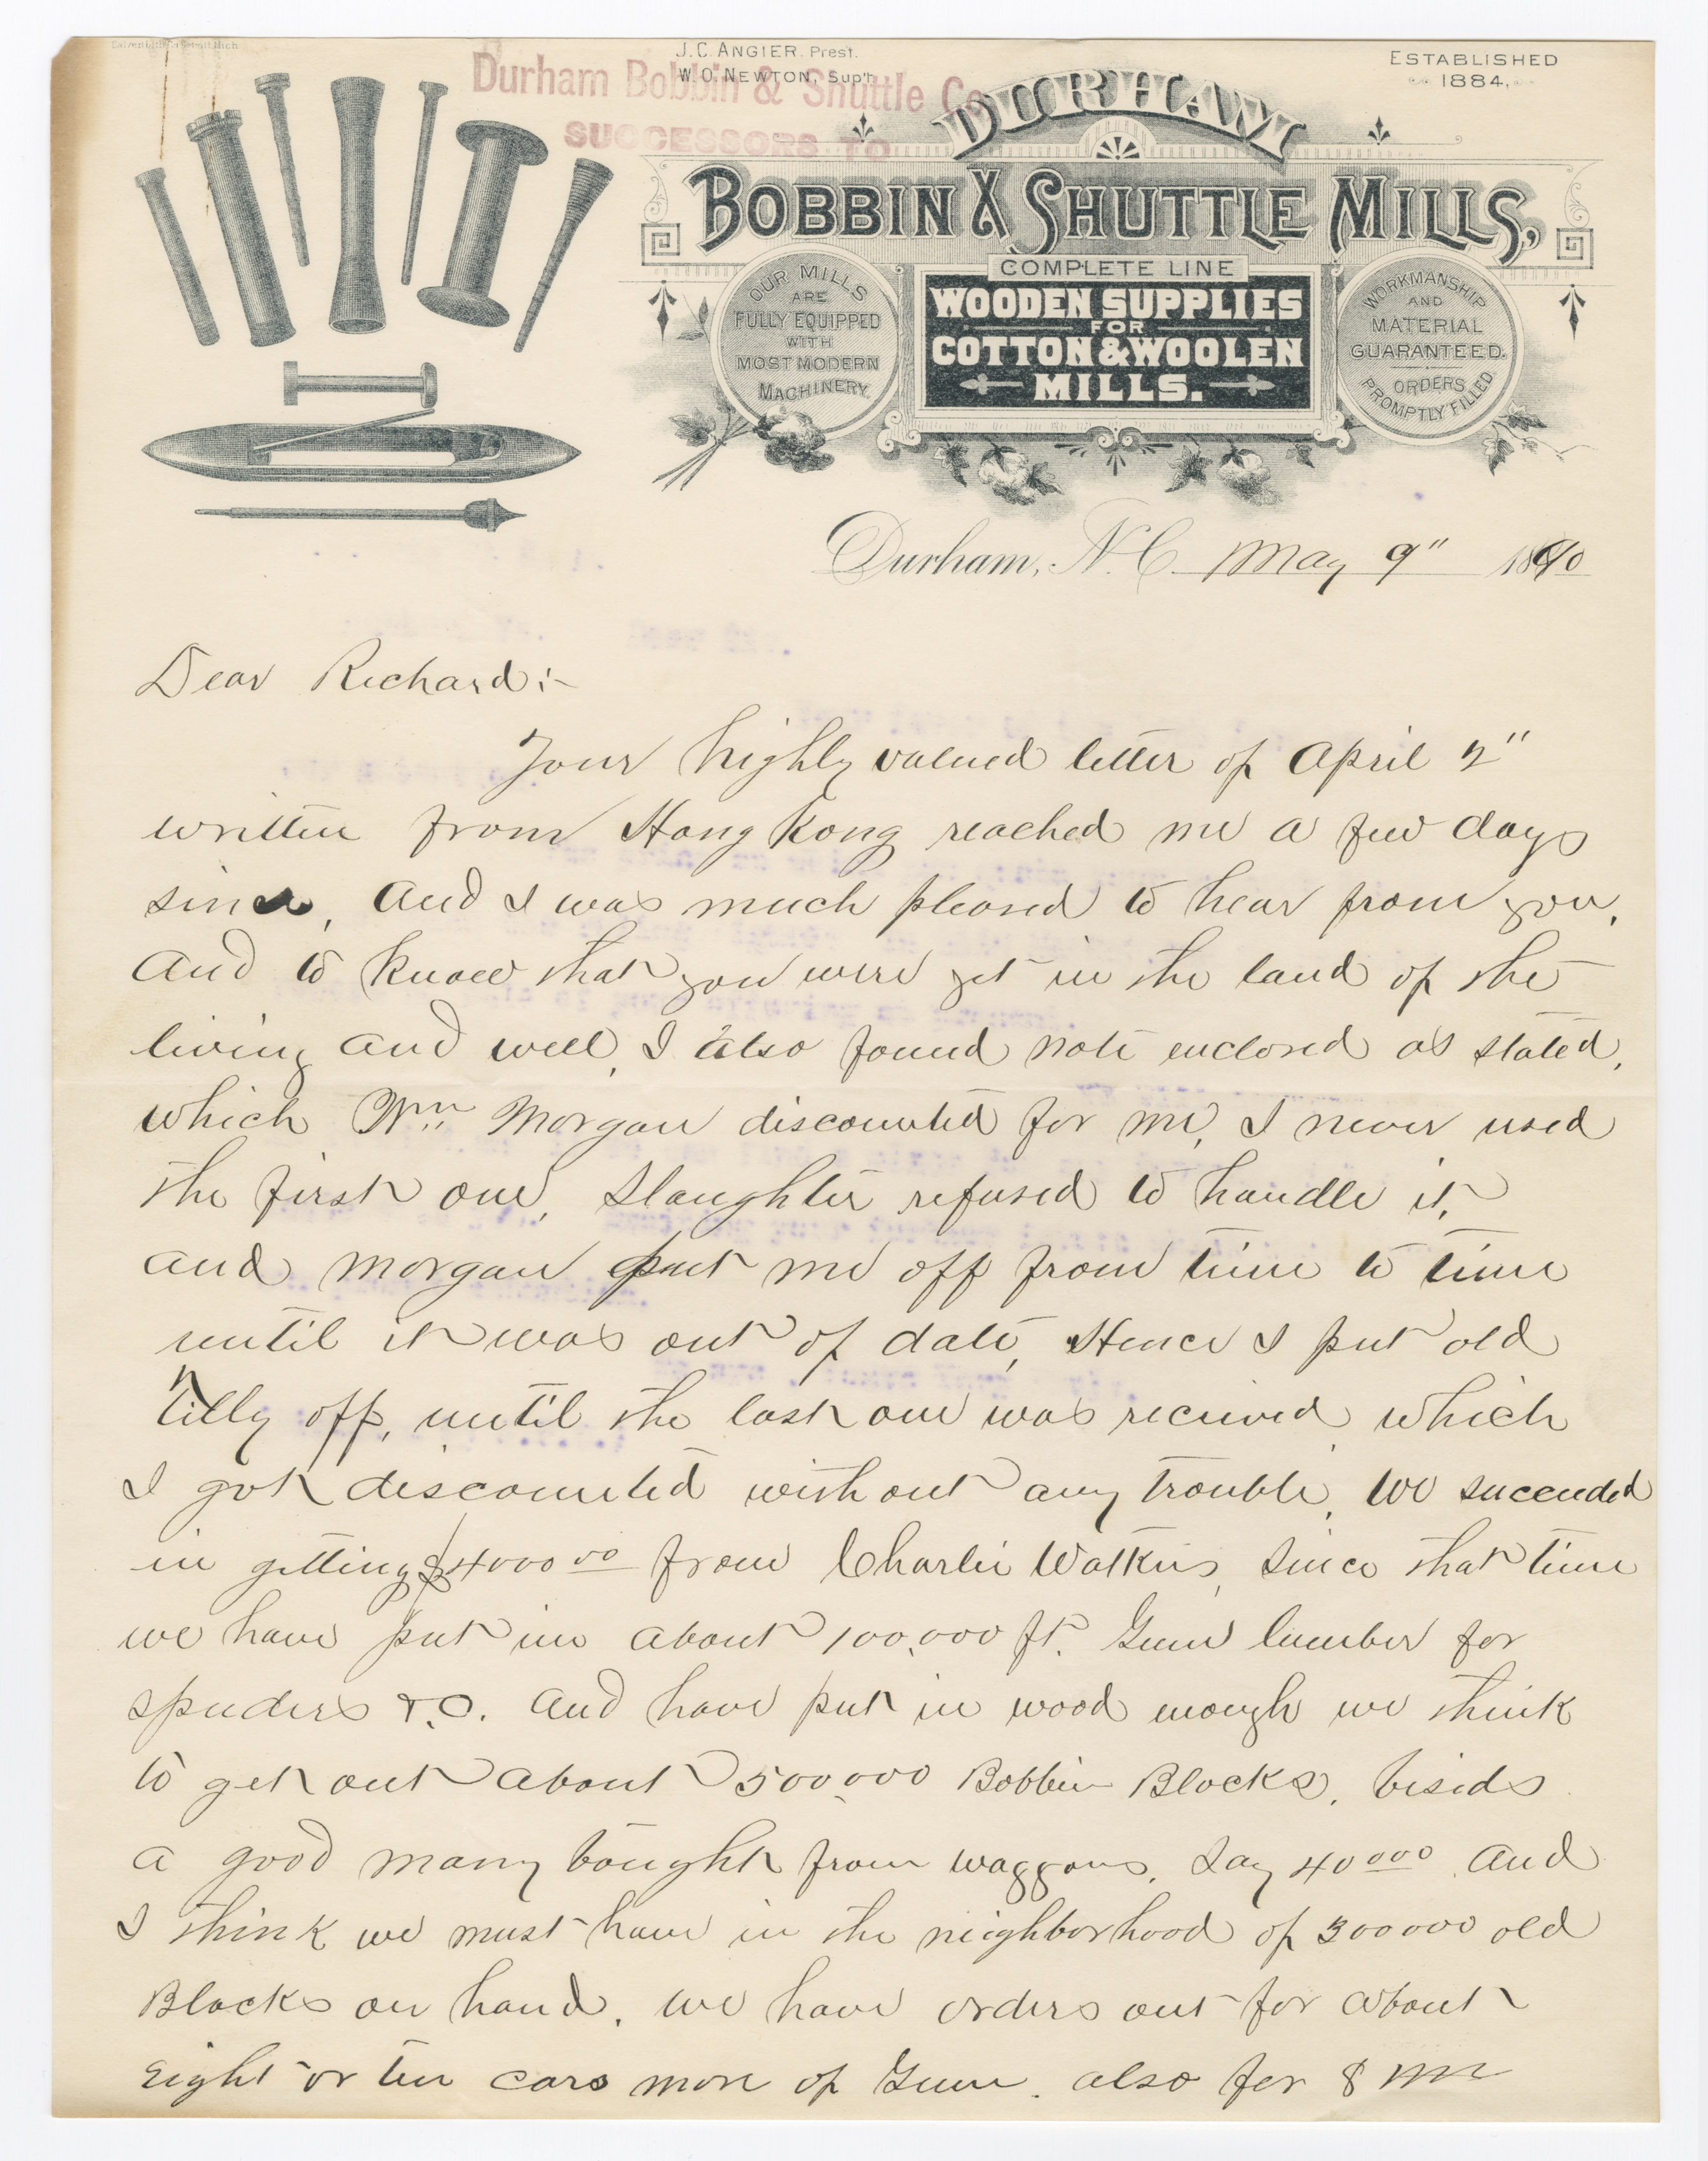 J. C. ANGIER, Prest.
W. O. NEWTON, Sup't.
ESTABLISHED
1884.
Durham Bobbin & Shuttle Co
SUCCESSORS TO
DURHAM
BOBBIN & SHUTTLE MILLS,
COMPLETE LINE
WOODEN SUPPLIES
FOR
COTTON & WOOLEN
MILLS.
OUR MILLS
ARE
FULLY EQUIPPED
WITH
MOST MODERN
MACHINERY.
WORKMANSHIP
AND
MATERIAL
GUARANTEED.
ORDERS
PROMPTLY FILLED
Durham, N.C. May 9" 1890
Dear Richard:-
Your highly valued letter of April 2"
written from Hong Kong reached me a few days
since, and I was much pleased to hear from you,
and to know that you were yet in the land of the
living and well, I also found note enclosed as stated,
which Wm Morgan discounted for me, I never used
the first one, Slaughter refused to handle it,
and Morgan put me off from time to time
until it was out of date, Hence I put old
Tilly off, until the last one was recieved which
I got discounted without any trouble, We succeeded
in getting $4000 00 from Charlie Watkins, Since that time
we have put in about 100,000 ft. Gum lumber for
&.C. and have put in wood enough we think
to get out about 500,000 Bobbin Blocks, besids
a good many bought from waggons, Say 40000 and
I think we must have in the neighborhood of 300000 old
Blocks on hand, we have orders out for about
Eight or ten cars more of Gum. also for 8